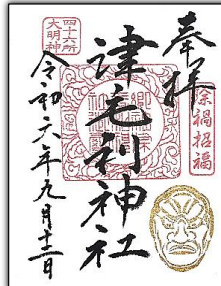 奉拝
除禍招福
津毛利神社
四十九所
大明神
令和六年九月十二日